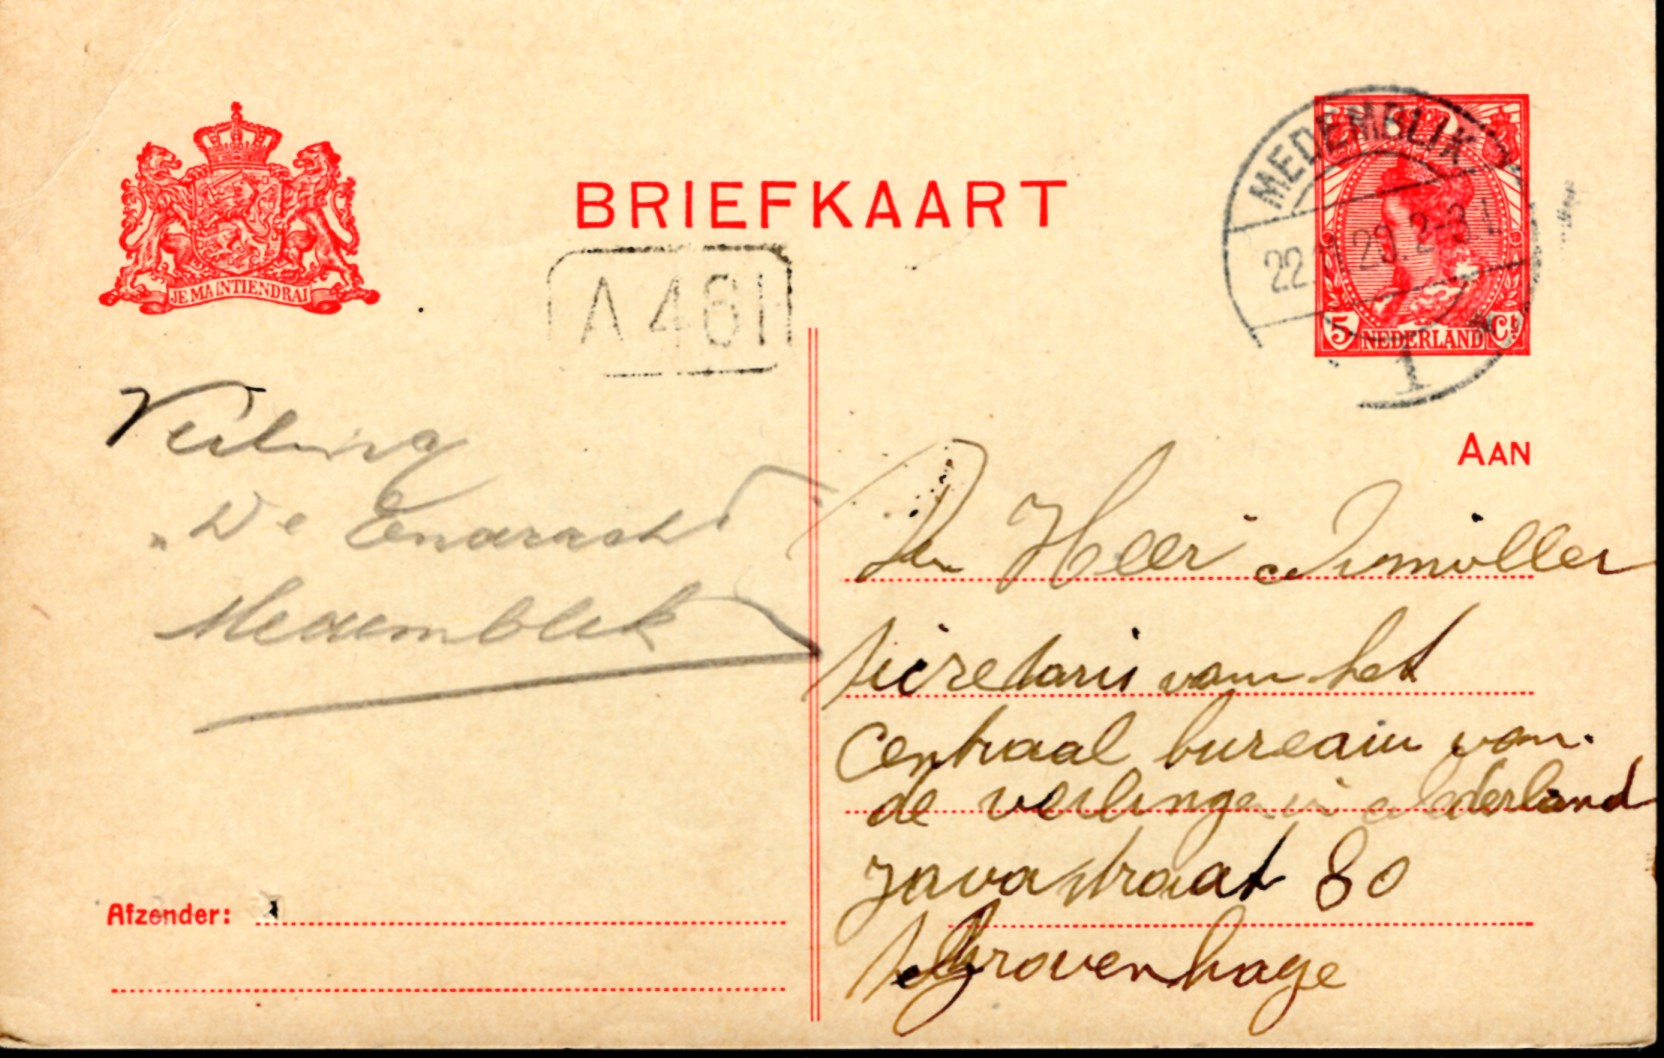 BRIEFKAART
JE MAINTIENDRAI
A 461
MEDEMBLIK
22. 20. 2-3 N
1
5 Ct
NEDERLAND
AAN
Veiling
"De Eendracht"
Medemblik
Den Heer
secretaris van het
Centraal bureau van
de veilingen in Nederland
Javastraat 80
s Gravenhage
Afzender: